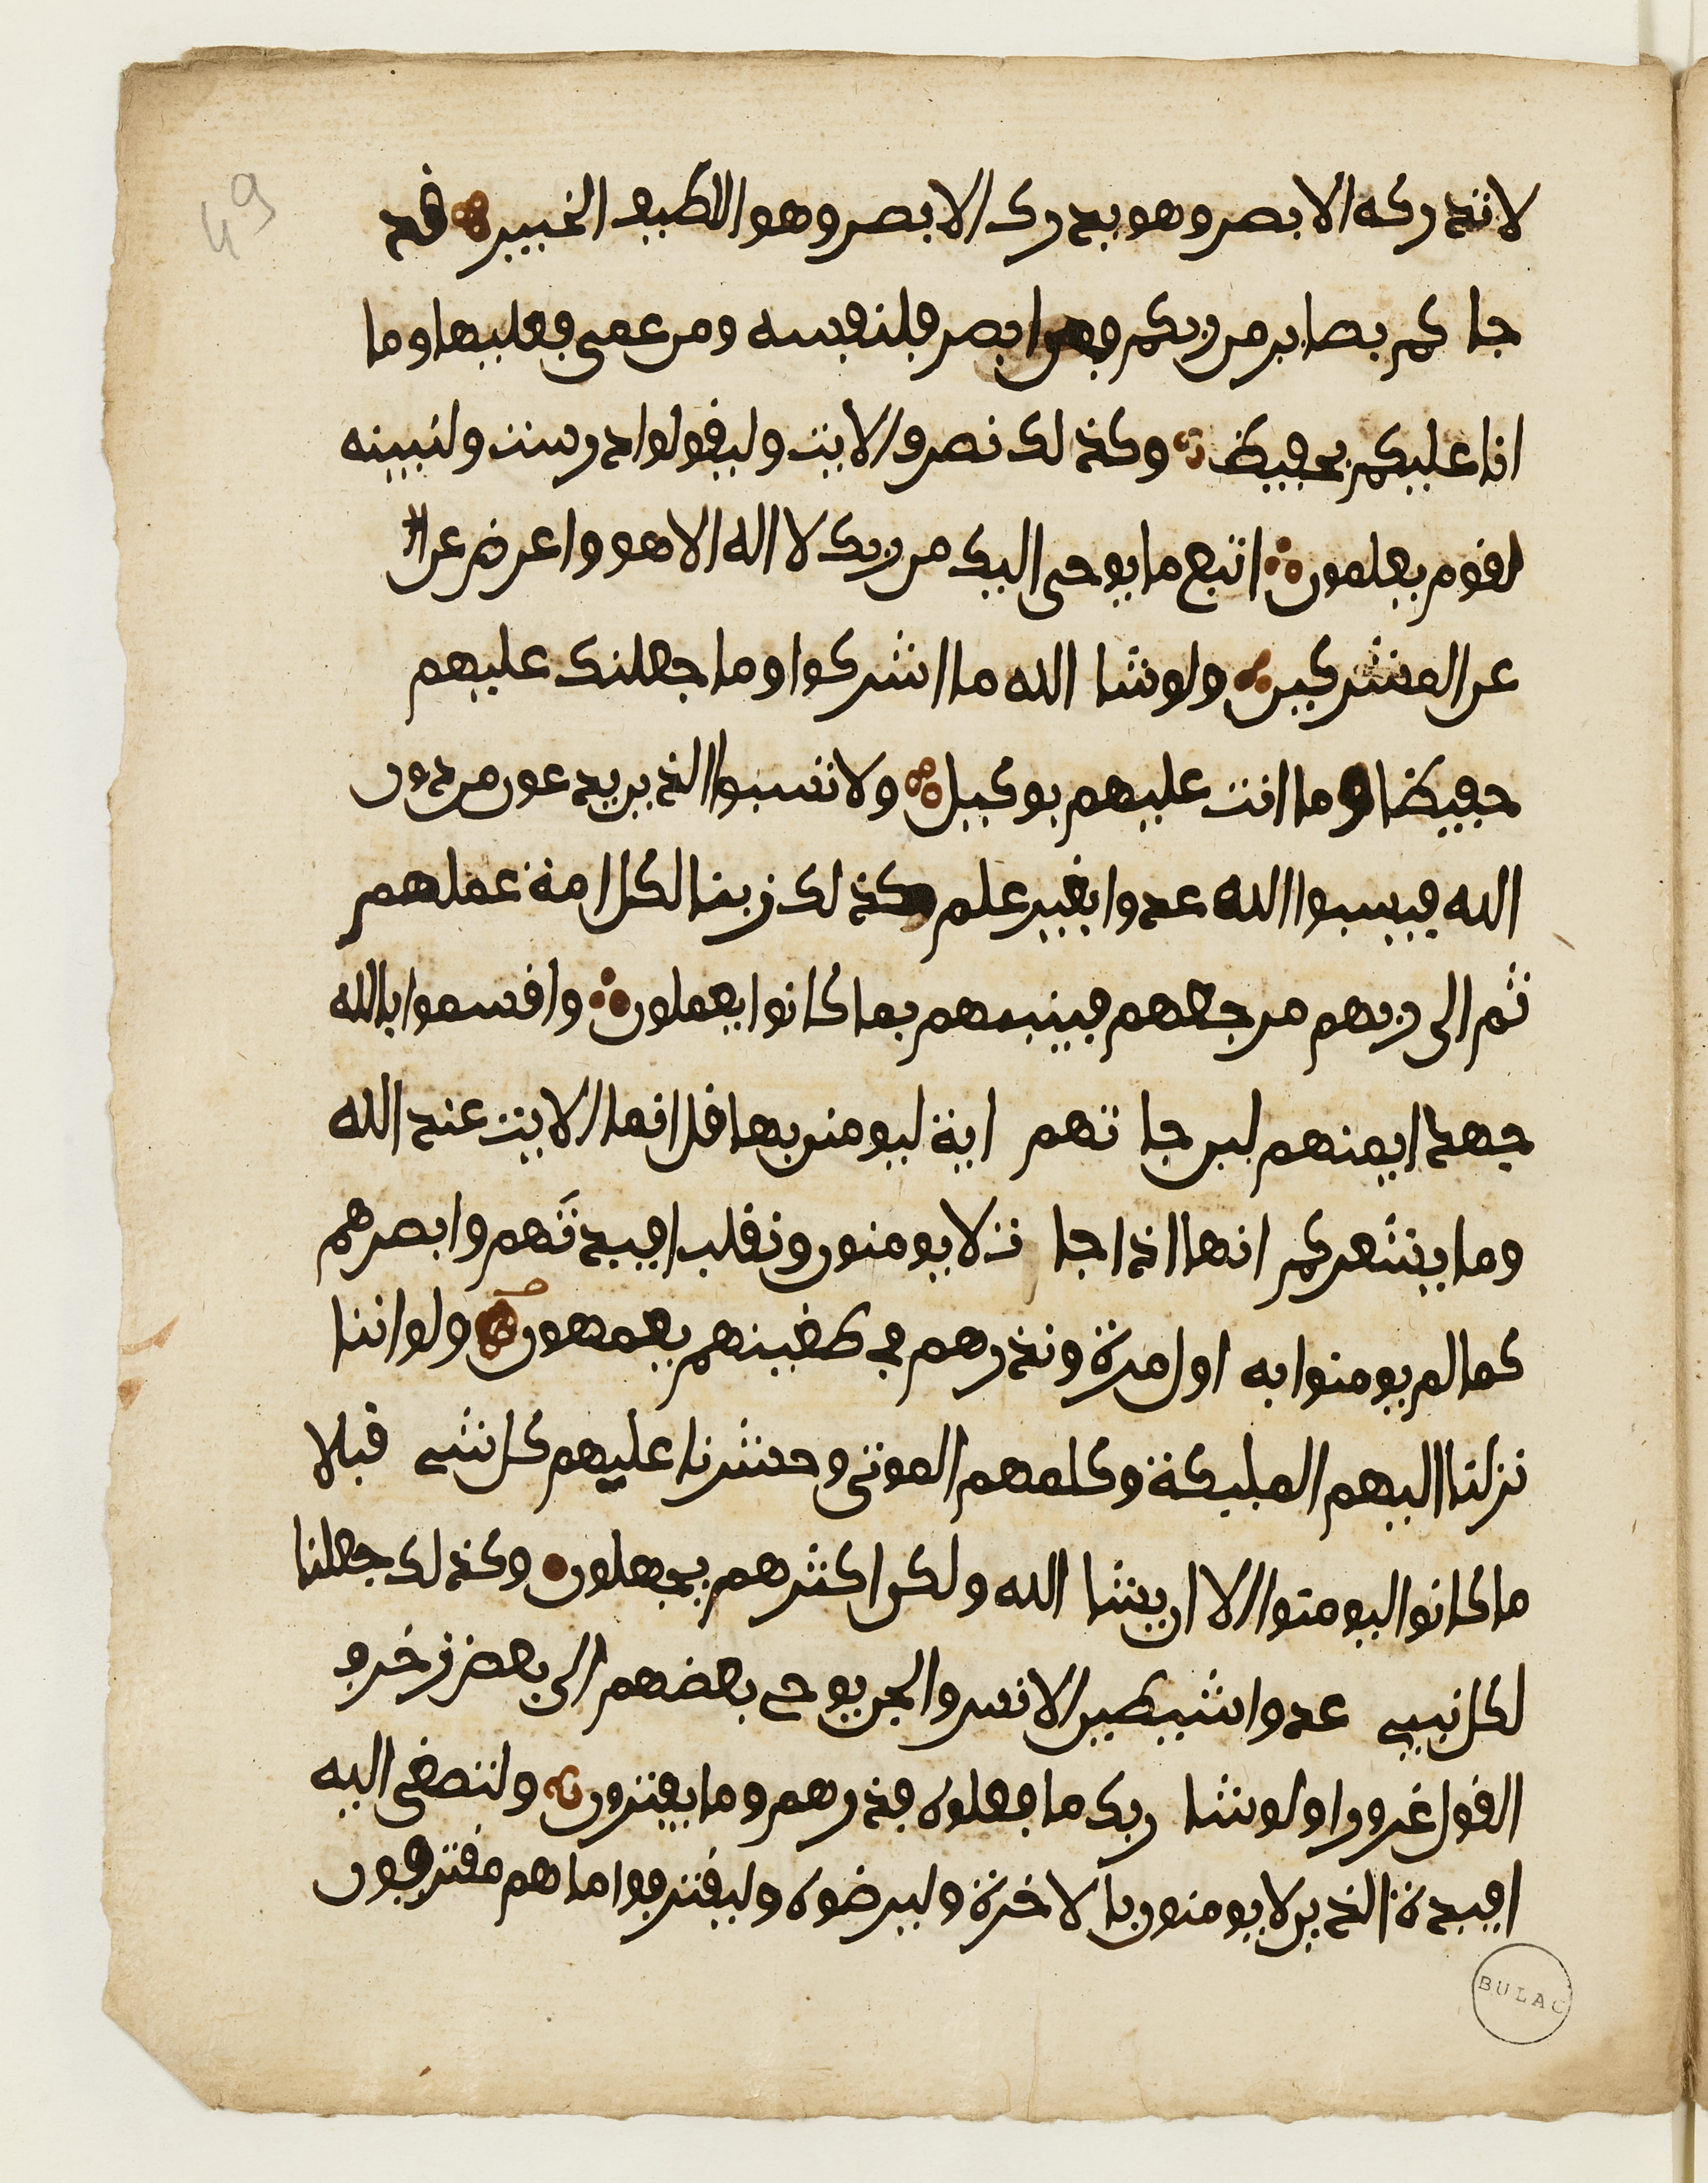 49
لا تدركه الابصر وهو يدرك الابصر وهو اللطيف الخبير قد
جا كم بصاير من ربكم فمن ابصر فلنفسه ومن عمى فعليها وما
انا عليكم بحفيظ وكذلك نصرف الايت وليقولوا درست ولنبينه
لقوم يعلمون اتبع ما يوحى اليك من ربك لا اله الا هو واعرض عن ا
عن المشركين ولو شا الله ما اشركوا وما جعلنك عليهم
حفيظا وما انت عليهم بوكيل ولا تسبوا الذين يدعون من دون
الله فيسبوا الله عدوا بغير علم كذلك زينا لكل امة عملهم
ثم الى ربهم مرجعهم فينبيهم بما كانوا يعملون واقسموا بالله
جهد ايمنهم لين جا تهم اية ليومنن بها قل انما الايت عند الله
وما يشعركم انها اذا جا ت لا يومنون ونقلب افيدتهم وابصرهم
كما لم يومنوا به اول مرة ونذرهم في طغينهم يعمهون ولو اننا
نزلنا اليهم المليكة وكلمهم الموتى وحشرنا عليهم كل شي قبلا
ما كانوا ليومنوا الا ان يشا الله ولكن اكثرهم يجهلون وكذلك جعلنا
لكل نبيي عدوا شيطين الانس والجن يوحي بعضهم الى بعض زخرف
القول غرورا ولو شا ربك ما فعلوه فذرهم وما يفترون ولتصغى اليه
افيدة الذين لا يومنون بالاخرة وليرضوه وليقترفوا ما هم مقترفون
BULAC